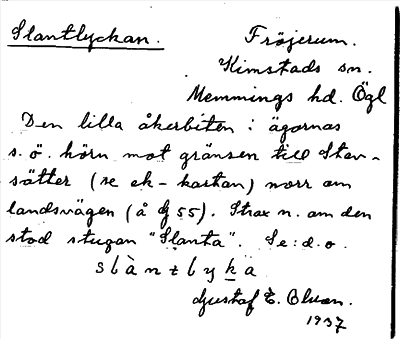 Slantlyckan. Fröjerum.
Kimstads sn.
Memmings hd. Ögl
Den lilla åkerbiten i ägornas
s.ö. hörn mot gränsen till Stav-
sätter (se ek-kartan) norr om
landsvägen (å Dj 55). Strax n. om den
stod stugan "Slanta". Se: d. o.
slàntlyka
Gustaf E. Olsson.
1937